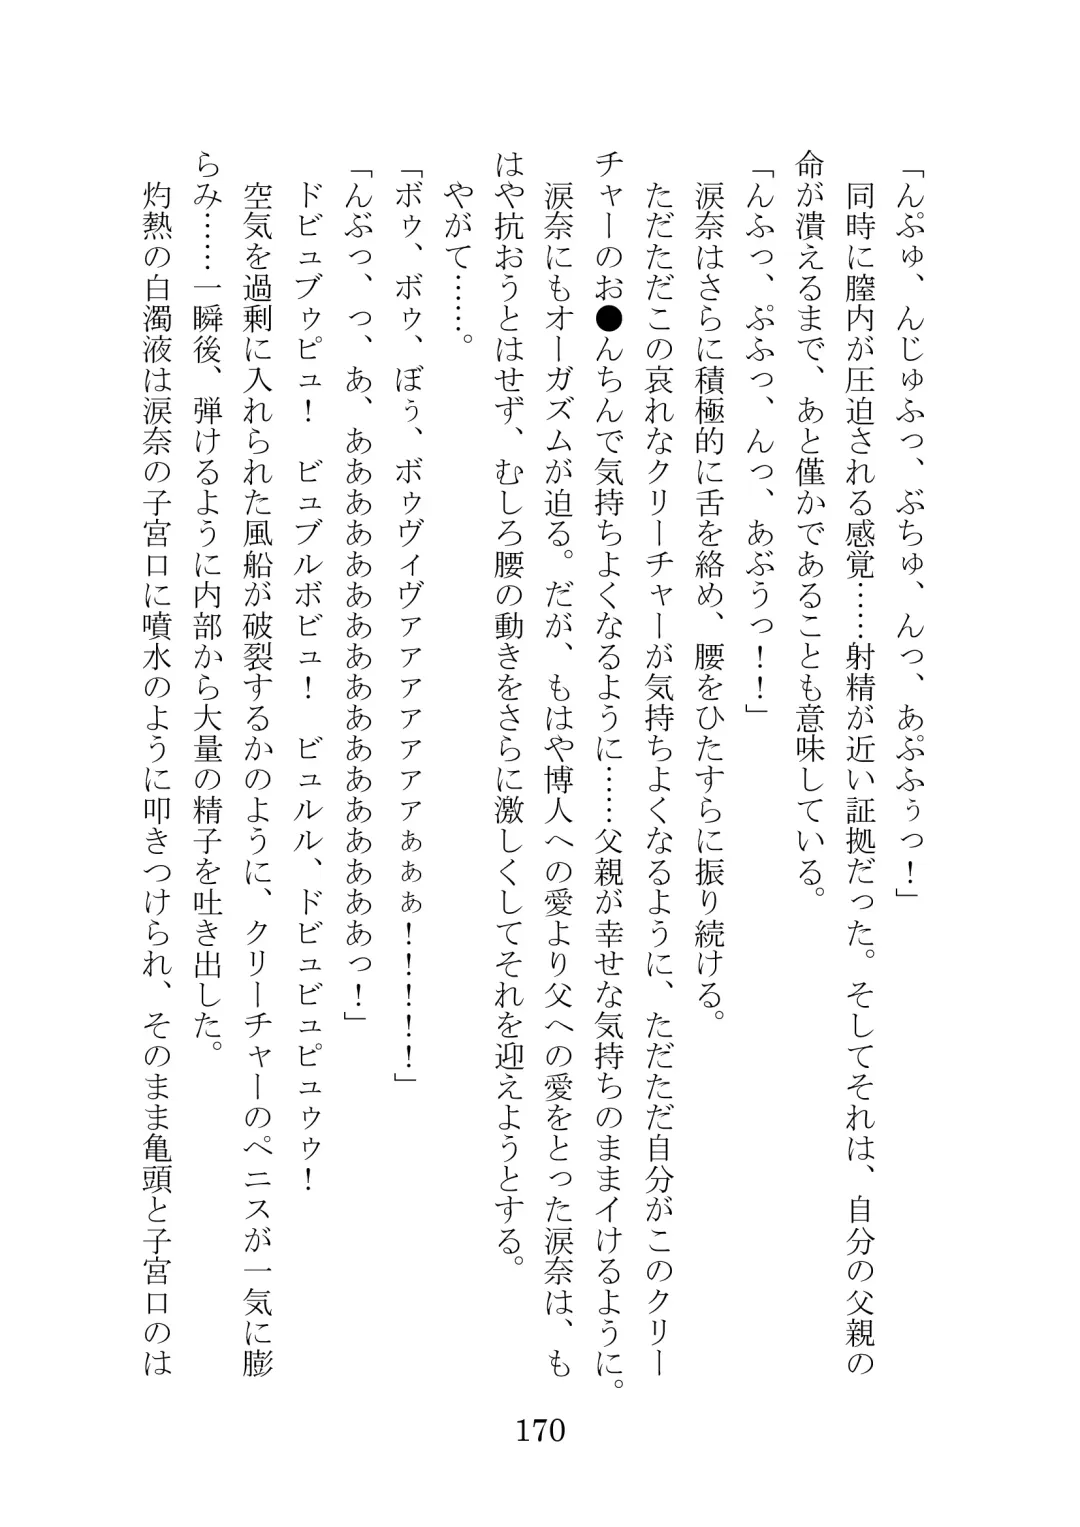 「んぷゅ、んじゅふっ、ぶちゅ、んっ、あぷふぅっ！」
同時に膣内が圧迫される感覚……射精が近い証拠だった。そしてそれは、自分の父親の
命が潰えるまで、あと僅かであることも意味している。
「んふっ、ぷふっ、んっ、あぶうっ！！」
涙奈はさらに積極的に舌を絡め、腰をひたすらに振り続ける。
ただただこの哀れなクリーチャーが気持ちよくなるように、ただただ自分がこのクリー
チャーのお●んちんで気持ちよくなるように……父親が幸せな気持ちのままイけるように。
涙奈にもオーガズムが迫る。だが、もはや博人への愛より父への愛をとった涙奈は、も
はや抗おうとはせず、むしろ腰の動きをさらに激しくしてそれを迎えようとする。
やがて……。
「ボゥ、ボゥ、ぼぅ、ボゥヴィヴァァァァァァぁぁぁ！！！！！」
「んぶっ、っ、あ、ああああああああああああああああああっ！」
ドビュブゥピュ！　ビュブルボビュ！　ビュルル、ドビュビュピュゥゥ！
空気を過剰に入れられた風船が破裂するかのように、クリーチャーのペニスが一気に膨
らみ……一瞬後、弾けるように内部から大量の精子を吐き出した。
灼熱の白濁液は涙奈の子宮口に噴水のように叩きつけられ、そのまま亀頭と子宮口のは
170